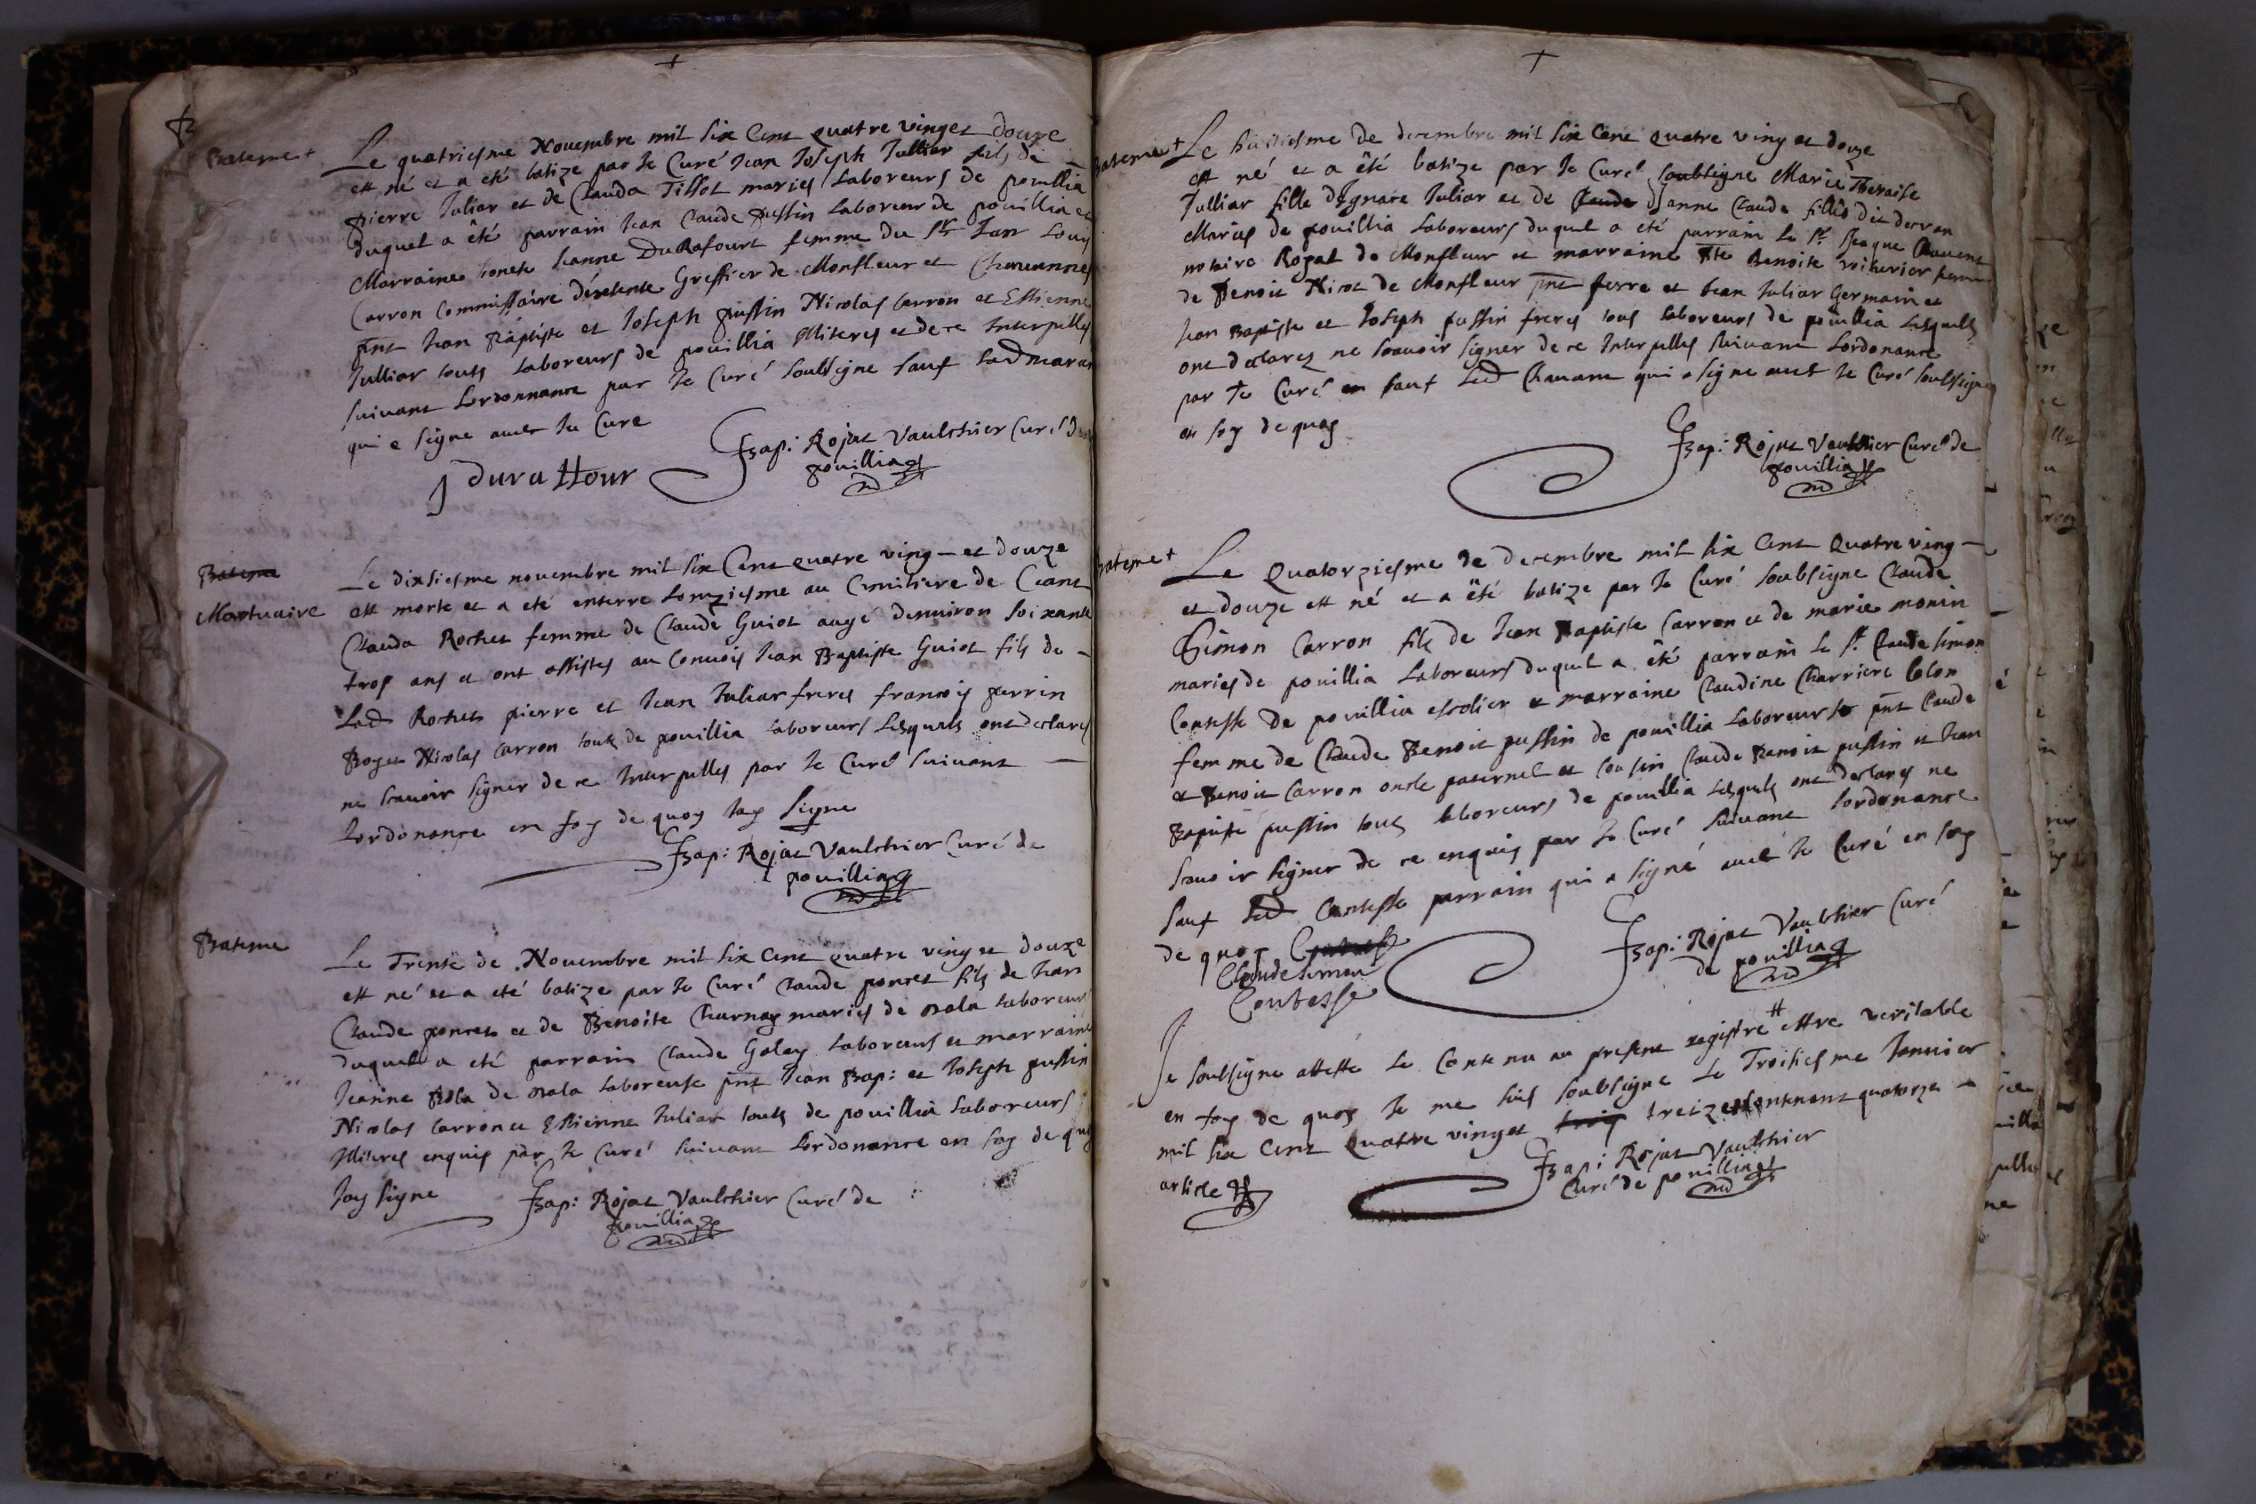 Bateme +
Le quatriesme Novembre mil six Cent quatre vinget douze
est né et a eté batize par Je Curé Jean Joseph Julliar fils de
pierre Juliar et de Clauda Tissot maries Laboreurs de pouillia
duquel a êté parrain Jean Claude pussin Laboreur de pouillia et
Marraine honete Jeanne DuRafourt femme du Sr Jean Louis
Carron Commissaire Greffier de Monfleur et Chavannes
pnt Jean Baptiste et Joseph pussin Nicolas Carron et Estienne
Julliar touts Laboreurs de pouillia Illiteres et de ce Interpelles
suivant Lordonnance par Je Curé soubsigne sauf lad maraine
qui a signe avec Je Cure
J duraffour
Bap: Rojat Vaulchier Curé de
pouillia
Bateme
Mortuaire
Le dixsiesme novembre mil six Cent quatre ving et douze
est morte et a eté enterre Lonziesme au Cimitiere de Ceans
Clauda Rochet femme de Claude Guiot augé denviron soixante
trop ans et ont assistes au Convois Jean Baptiste Guiot fils de
Lad Rochet pierre et Jean Juliar freres francois perrin
Roger Nicolas Carron touts de pouillia Laboreurs Lesquels ont declares
ne scavoir signer de ce Interpelles par Je Curé suivant
Lordonance en foy de quoy Jay signe
Bap: Rojat Vaulchier Curé de
pouillia
Bateme
Le Trente de Novembre mil six Cent quatre vinget douze
est né et a eté batize par Je Curé Claude poncet fils de Jean
Claude poncet et de Benoite Charnay maries de Laboreurs
duquel a eté parrain Claude Galey Laboreurs et marraine
Jeanne de Laboreuse pnt Jean Bap: et Joseph pussin
Nicolas Carron et Estienne Juliar touts de pouillia Laboreurs
Illiteres enquis par Je Curé suivant Lordonance en foy de quoy
Jay signe
Bap: Rojat Vaulchier Curé de
pouillia
Bateme +
Le huitiesme de decembre mil six Cent quatre ving et douze
est né et a êté batize par Je Curé soubsigne Marie Theraise
Julliar fille dIgnace Juliar et de Claude Janne Claude
Maries de pouillia Laboreurs duquel a eté parrain Le Sr Chavent
notaire Royal de Monfleur et marraine Benoite voiturier femme
de Benoit Nicot de Monfleur pnt pierre et Jean Juliar Germain et
Jean Baptiste et Joseph pussin freres tous Laboreurs de pouillia Lesquels
ont declares ne scavoir signer de ce Interpelles suivant Lordonance
par Je Curé en sauf Led Chavant qui a signe avec Je Curé soubsigne
en foy de quoy
Bap: Rojat Vaulchier Curé de
pouillia
Bateme +
Le Quatorziesme de decembre mil six Cent Quatre ving
et douze est né et a êté batize par Je Curé soubsigne Claude
Simon Carron fils de Jean Baptiste Carron et de marie monin
maries de pouillia Laboreurs duquel a êté parrain Le Sr Claude simon
Contesse de pouillia escolier et marraine Claudine Charriere
femme de Claude Benoit pussin de pouillia Laboreurs pnt Claude
et Benoit Carron oncle paternel et cousin Claude Benoit pussin et Jean
Baptiste pussin touts laboreurs de pouillia Lesquels ont declares ne
scavoir signer de ce enquis par Je Curé suivant Lordonance
sauf Led Contesse parrain qui a signé avec Je Curé en foy
de quoy
Claude simon
Contesse
Bap: Rojat Vaulchier Curé
de pouillia
Je soubsigne atteste Le Contenu au present registre estre veritable
en foy de quoy Je me suis soubsigne Le Troisiesme Janvier
mil six Cent Quatre vinget trois treize contenant quatorze
article
Bap: Rojat Vaulchier
Curé de pouillia